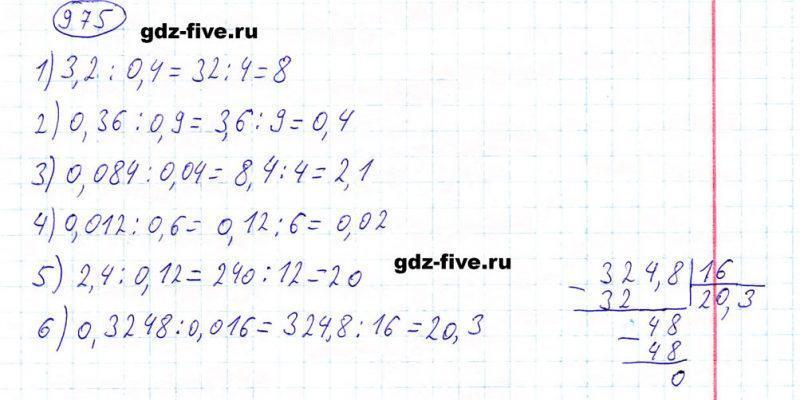 975
gdz-five.ru
1) 3,2 : 0,4 = 32 : 4 = 8
2) 0,36 : 0,9 = 3,6 : 9 = 0,4
3) 0,084 : 0,04 = 8,4 : 4 = 2,1
4) 0,012 : 0,6 = 0,12 : 6 = 0,02
gdz-five.ru
5) 2,4 : 0,12 = 240 : 12 = 20
6) 0,3248 : 0,016 = 324,8 : 16 = 20,3
- 324,8 | 16
32 | 20,3
- 48
48
0